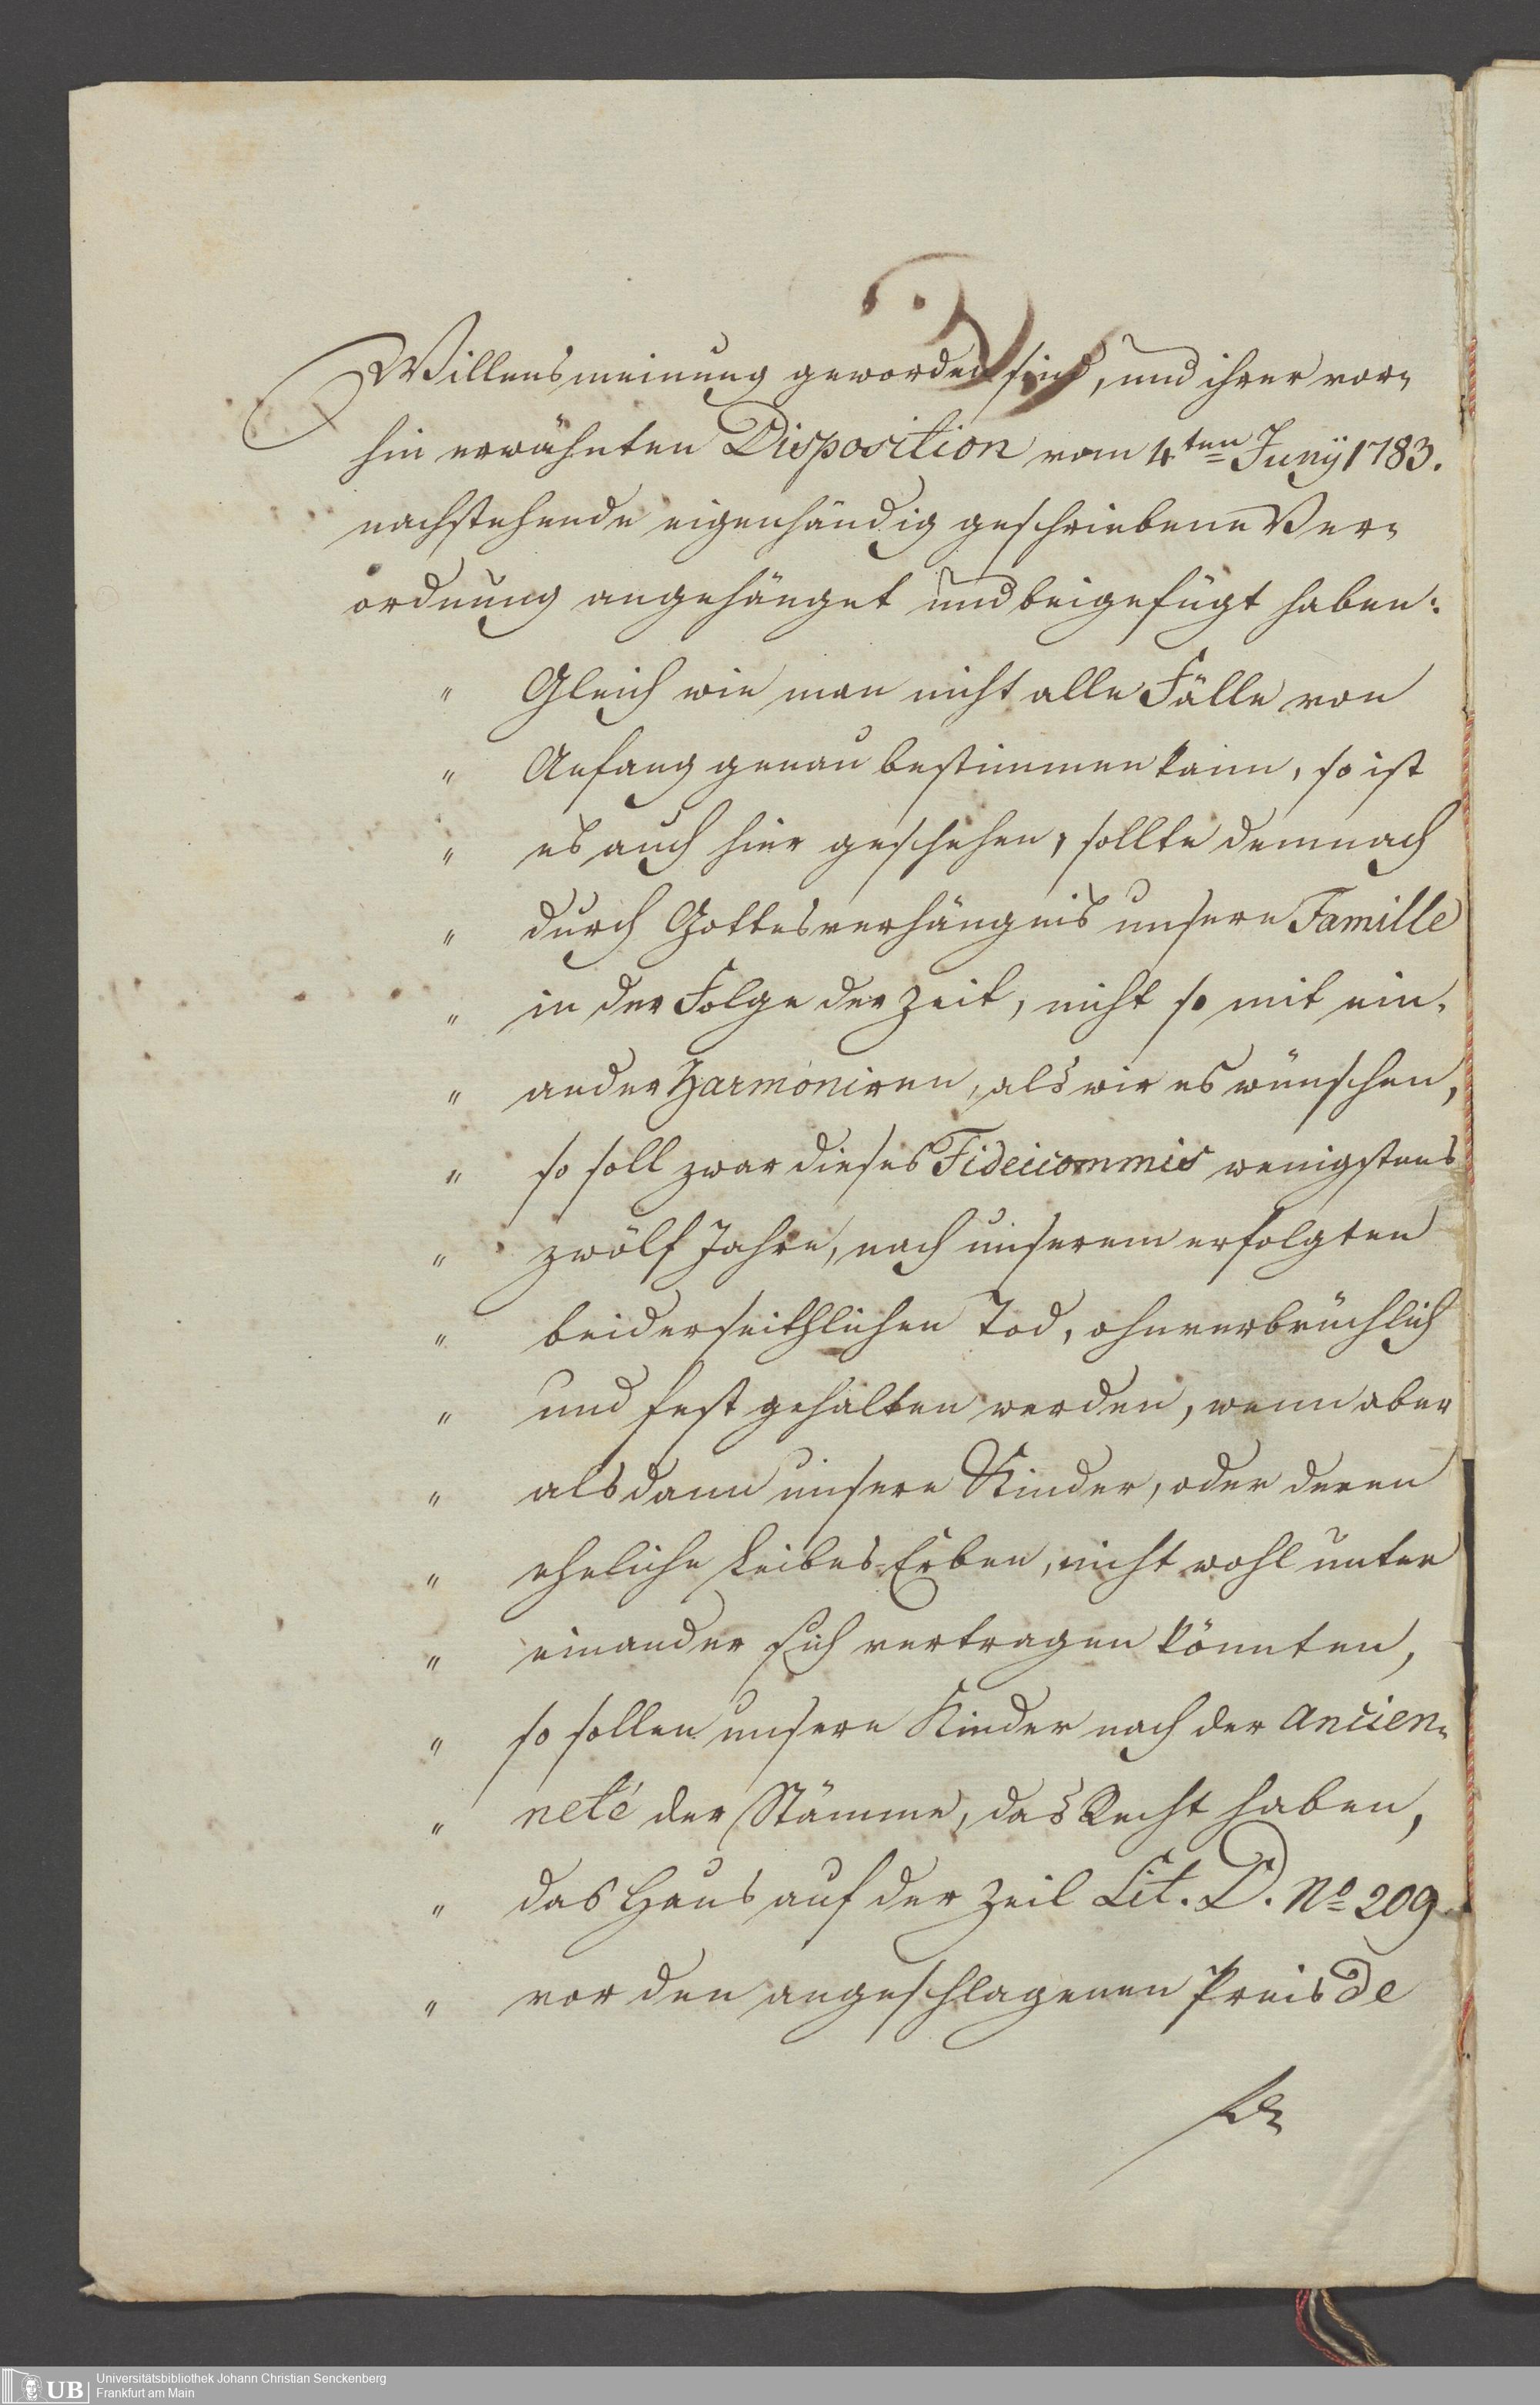 Willensmeinung geworden sind, und ihrer vor=
hin erwähnten Disposition vom 4ten Juny 1783.
nachstehende eigenhändig geschriebene Ver=
ordnung angehänget und beigefügt haben:
" Gleich wie man nicht alle Fälle von
" Anfang genau bestimmen kann, so ist
" es auch hier geschehen, sollte demnach
" durch Gottesverhängnis unsere Famille
" in der Folge der Zeit, nicht so mit ein=
" ander Harmoniren, als wir es wünschen,
" so soll zwar dieses Fideicommis wenigstens
" zwölf Jahre, nach unserem erfolgten
" beiderseithlichen Tod, ohnverbrüchlich
" und fest gehalten werden, wenn aber
" alsdann unsere Kinder, oder deren
" eheliche Leibes=Erben, nicht wohl unter
" einander sich vertragen könnten,
" so sollen unsere Kinder nach der ancien=
" neté der Stämme, das Recht haben,
" das Haus auf der Zeil Lit. D. No 209
" vor den angeschlagenen Preis de
Universitätsbibliothek Johann Christian Senckenberg
Frankfurt am Main
UB